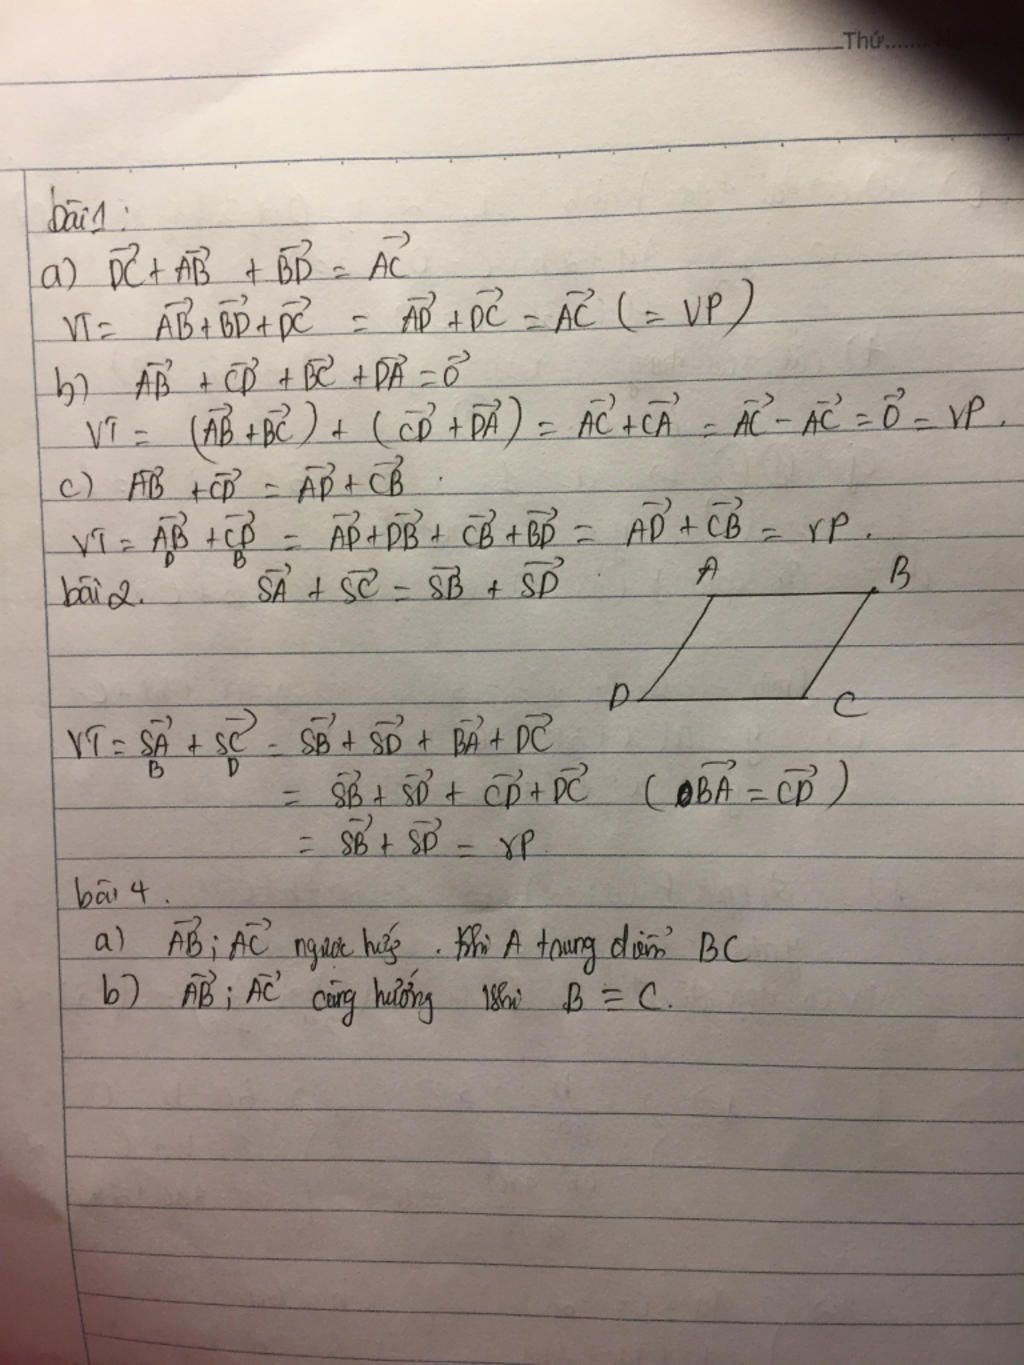 Thứ.......
bài 1:
a) DC⃗ + AB⃗ + BD⃗ = AC⃗
VT = AB⃗ + BD⃗ + DC⃗ = AD⃗ + DC⃗ = AC⃗ (= VP)
b) AB⃗ + CD⃗ + BC⃗ + DA⃗ = 0⃗
VT = (AB⃗ + BC⃗) + (CD⃗ + DA⃗) = AC⃗ + CA⃗ = AC⃗ - AC⃗ = 0⃗ = VP.
c) AB⃗ + CD⃗ = AD⃗ + CB⃗.
VT = AB⃗ + CD⃗ = AD⃗ + DB⃗ + CB⃗ + BD⃗ = AD⃗ + CB⃗ = VP.
D B
bài 2. SA⃗ + SC⃗ = SB⃗ + SD⃗
A B
D C
VT = SA⃗ + SC⃗ = SB⃗ + SD⃗ + BA⃗ + DC⃗
B D
= SB⃗ + SD⃗ + CD⃗ + DC⃗ (BA⃗ = CD⃗)
= SB⃗ + SD⃗ = VP
bài 4.
a) AB⃗; AC⃗ ngược . Khi A trung điểm BC
b) AB⃗; AC⃗ cùng hướng khi B ≡ C.